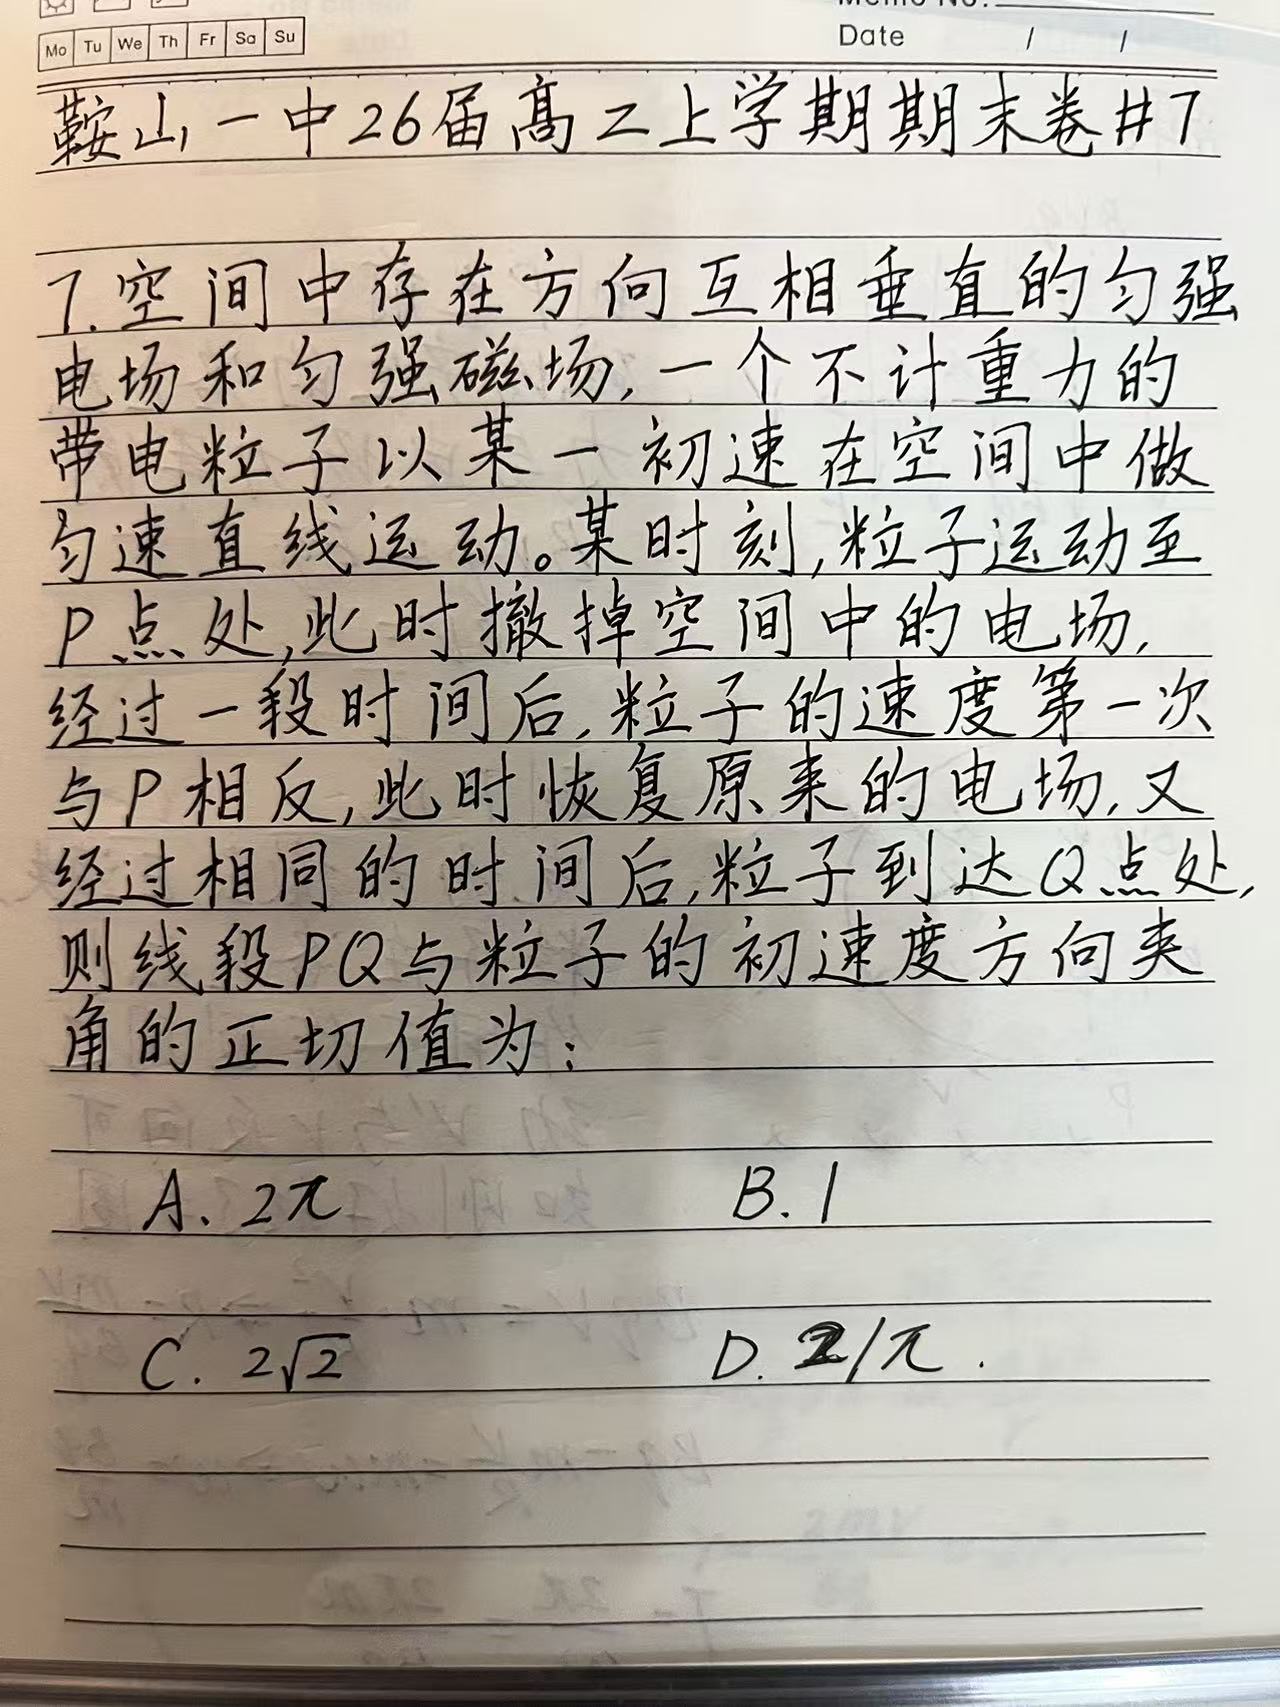 Memo No.:
Mo Tu We Th Fr Sa Su
Date / /
鞍山一中26届高二上学期期末卷#7
7.空间中存在方向互相垂直的匀强
电场和匀强磁场,一个不计重力的
带电粒子以某一初速在空间中做
匀速直线运动。某时刻,粒子运动至
P点处,此时撤掉空间中的电场,
经过一段时间后,粒子的速度第一次
与P相反,此时恢复原来的电场,又
经过相同的时间后,粒子到达Q点处,
则线段PQ与粒子的初速度方向夹
角的正切值为:
A. 2π B. 1
C. 2√2 D. 2/π.